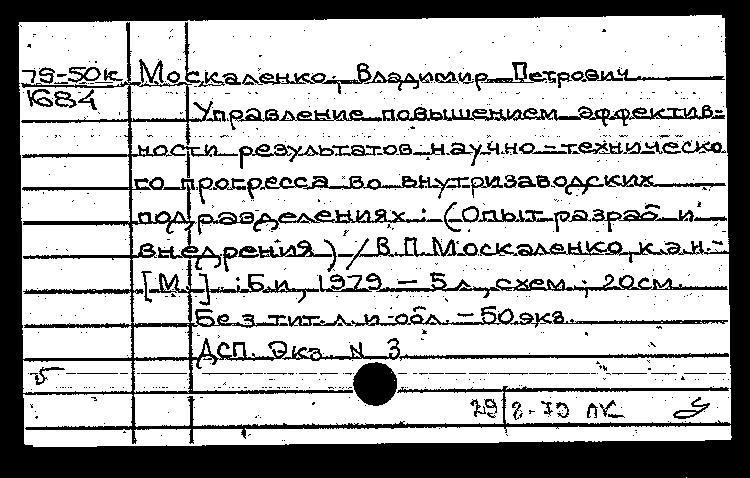 79-50к Москаленко, Владимир Петрович
К684
Управление повышением эффектив-
ности результатов научно-техническо
го прогресса во внутризаводских
подразделениях : (Опыт разраб и
внедрения) / В.П. Москаленко, к.э.н.-
[М.] : Б.и, 1979 – 5 л., схем ; 20см.
Без тит. л. и обл. – 50 экз.
ДСП. Экз N 3